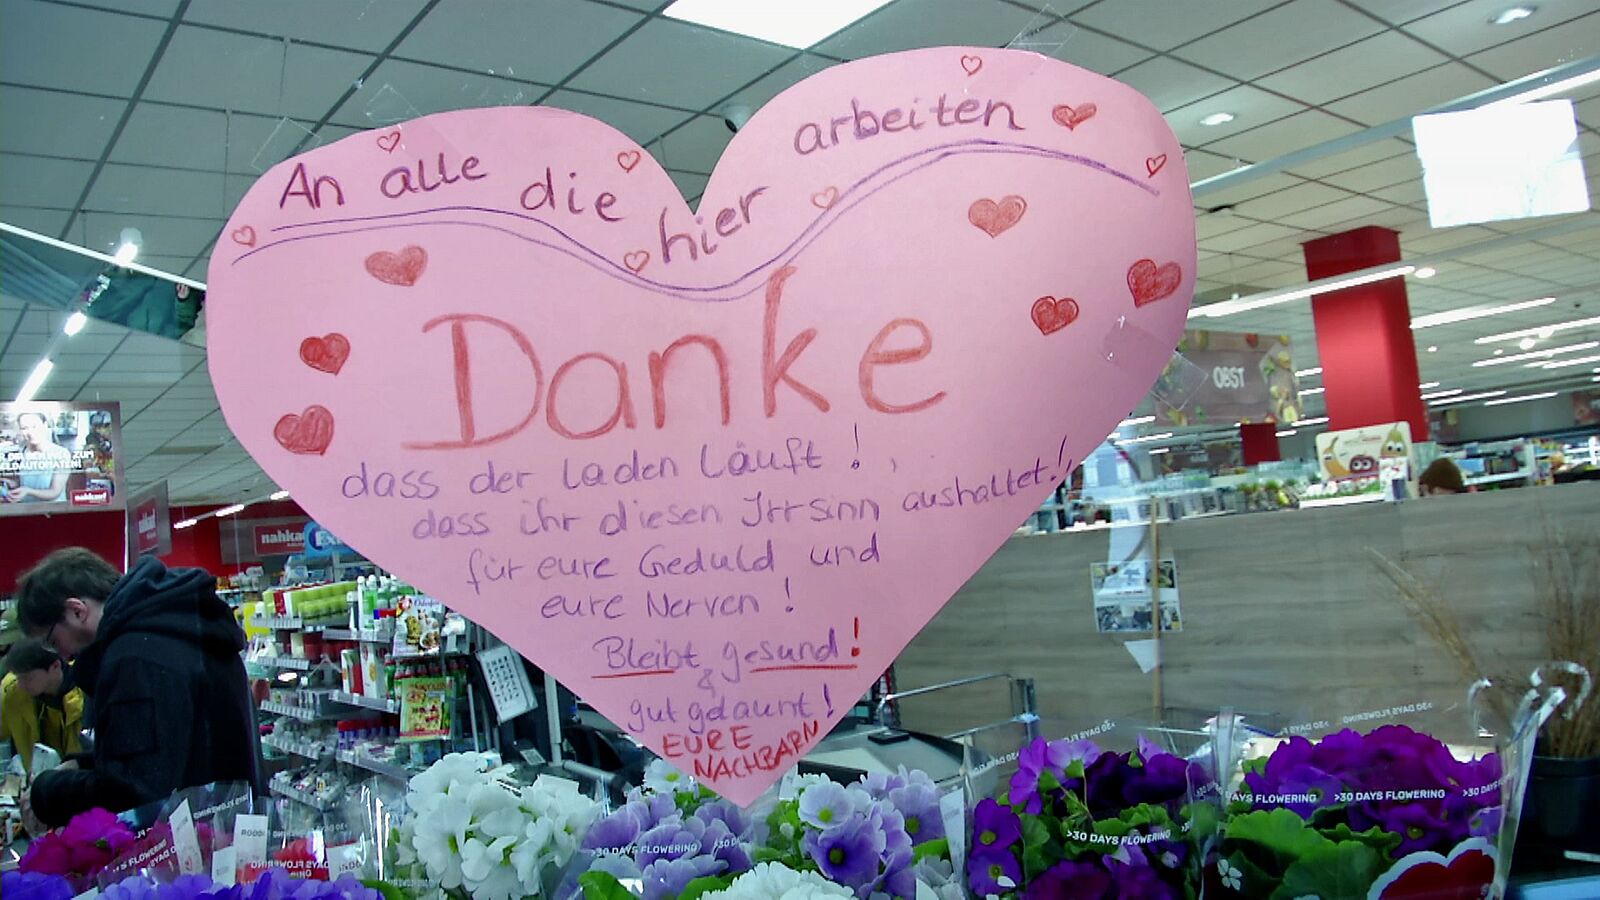 An alle die hier arbeiten
Danke
dass der Laden läuft!,
dass ihr diesen Irrsinn aushaltet!,
für eure Geduld und
eure Nerven!
Bleibt gesund!
&
gut gelaunt!
EURE
NACHBARN
OBST
nahkauf
>30 DAYS FLOWERING
>30 DAYS FLOWERING
>30 DAYS FLOWERING
DAYS FLOWERING >30 DAYS FLOWERING >30 DAYS